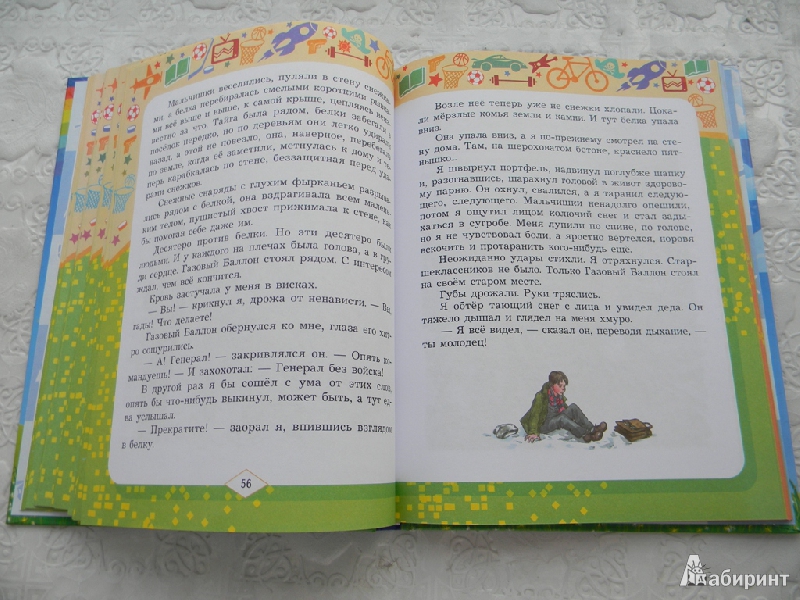 Мальчишки веселились, пуляли в стену снежка-
ми а белка перебиралась смелыми короткими рывка-
ми всё выше и выше, к самой крыше, цепляясь неиз-
вестно за что. Тайга была рядом, белки забегали в
посёлок нередко, но по деревьям они легко удирали
назад, а этой не повезло, она, наверное, перебегала
по земле, когда её заметили, метнулась к дому и те-
перь карабкалась по стене, беззащитная перед удара-
ми снежков.
Снежные снаряды с глухим фырканьем разрыва-
лись рядом с белкой, она вздрагивала всем малень-
ким телом, пушистый хвост прижимала к стене, как
бы помогая себе даже им.
Десятеро против белки. Но эти десятеро были
людьми. И у каждого на плечах была голова, а в гру-
ди сердце. Газовый Баллон стоял рядом. С интересом
ждал, чем всё кончится.
Кровь застучала у меня в висках.
— Вы! — крикнул я, дрожа от ненависти. — Вы,
гады! Что делаете!
Газовый Баллон обернулся ко мне, глаза его хит-
ро сощурились.
— А! Генерал! — закривлялся он. — Опять ко-
мандуешь! — И захохотал: — Генерал без войска!
В другой раз я бы сошёл с ума от этих слов,
опять бы что-нибудь выкинул, может быть, а тут ед-
ва услышал.
— Прекратите! — заорал я, впившись взглядом
в белку
56
Возле неё теперь уже не снежки хлопали. Цока-
ли мёрзлые комья земли и камни. И тут белка упала
вниз.
Она упала вниз, а я по-прежнему смотрел на сте-
ну дома. Там, на шероховатом бетоне, краснело пят-
нышко...
Я швырнул портфель, надвинул поглубже шапку
и, разогнавшись, шарахнул головой в живот здорово-
му парню. Он охнул, свалился, а я таранил следую-
щего, следующего. Мальчишки ненадолго опешили,
потом я ощутил лицом колючий снег и стал зады-
хаться в сугробе. Меня лупили по спине, по голове,
но я не чувствовал боли, а яростно вертелся, норовя
вскочить и протаранить кого-нибудь ещё.
Неожиданно удары стихли. Я отряхнулся. Стар-
шеклассников не было. Только Газовый Баллон стоял
на своём старом месте.
Губы дрожали. Руки тряслись.
Я обтёр тающий снег с лица и увидел деда. Он
тяжело дышал и глядел на меня хмуро.
— Я всё видел, — сказал он, переводя дыхание, —
ты молодец!
Лабиринт